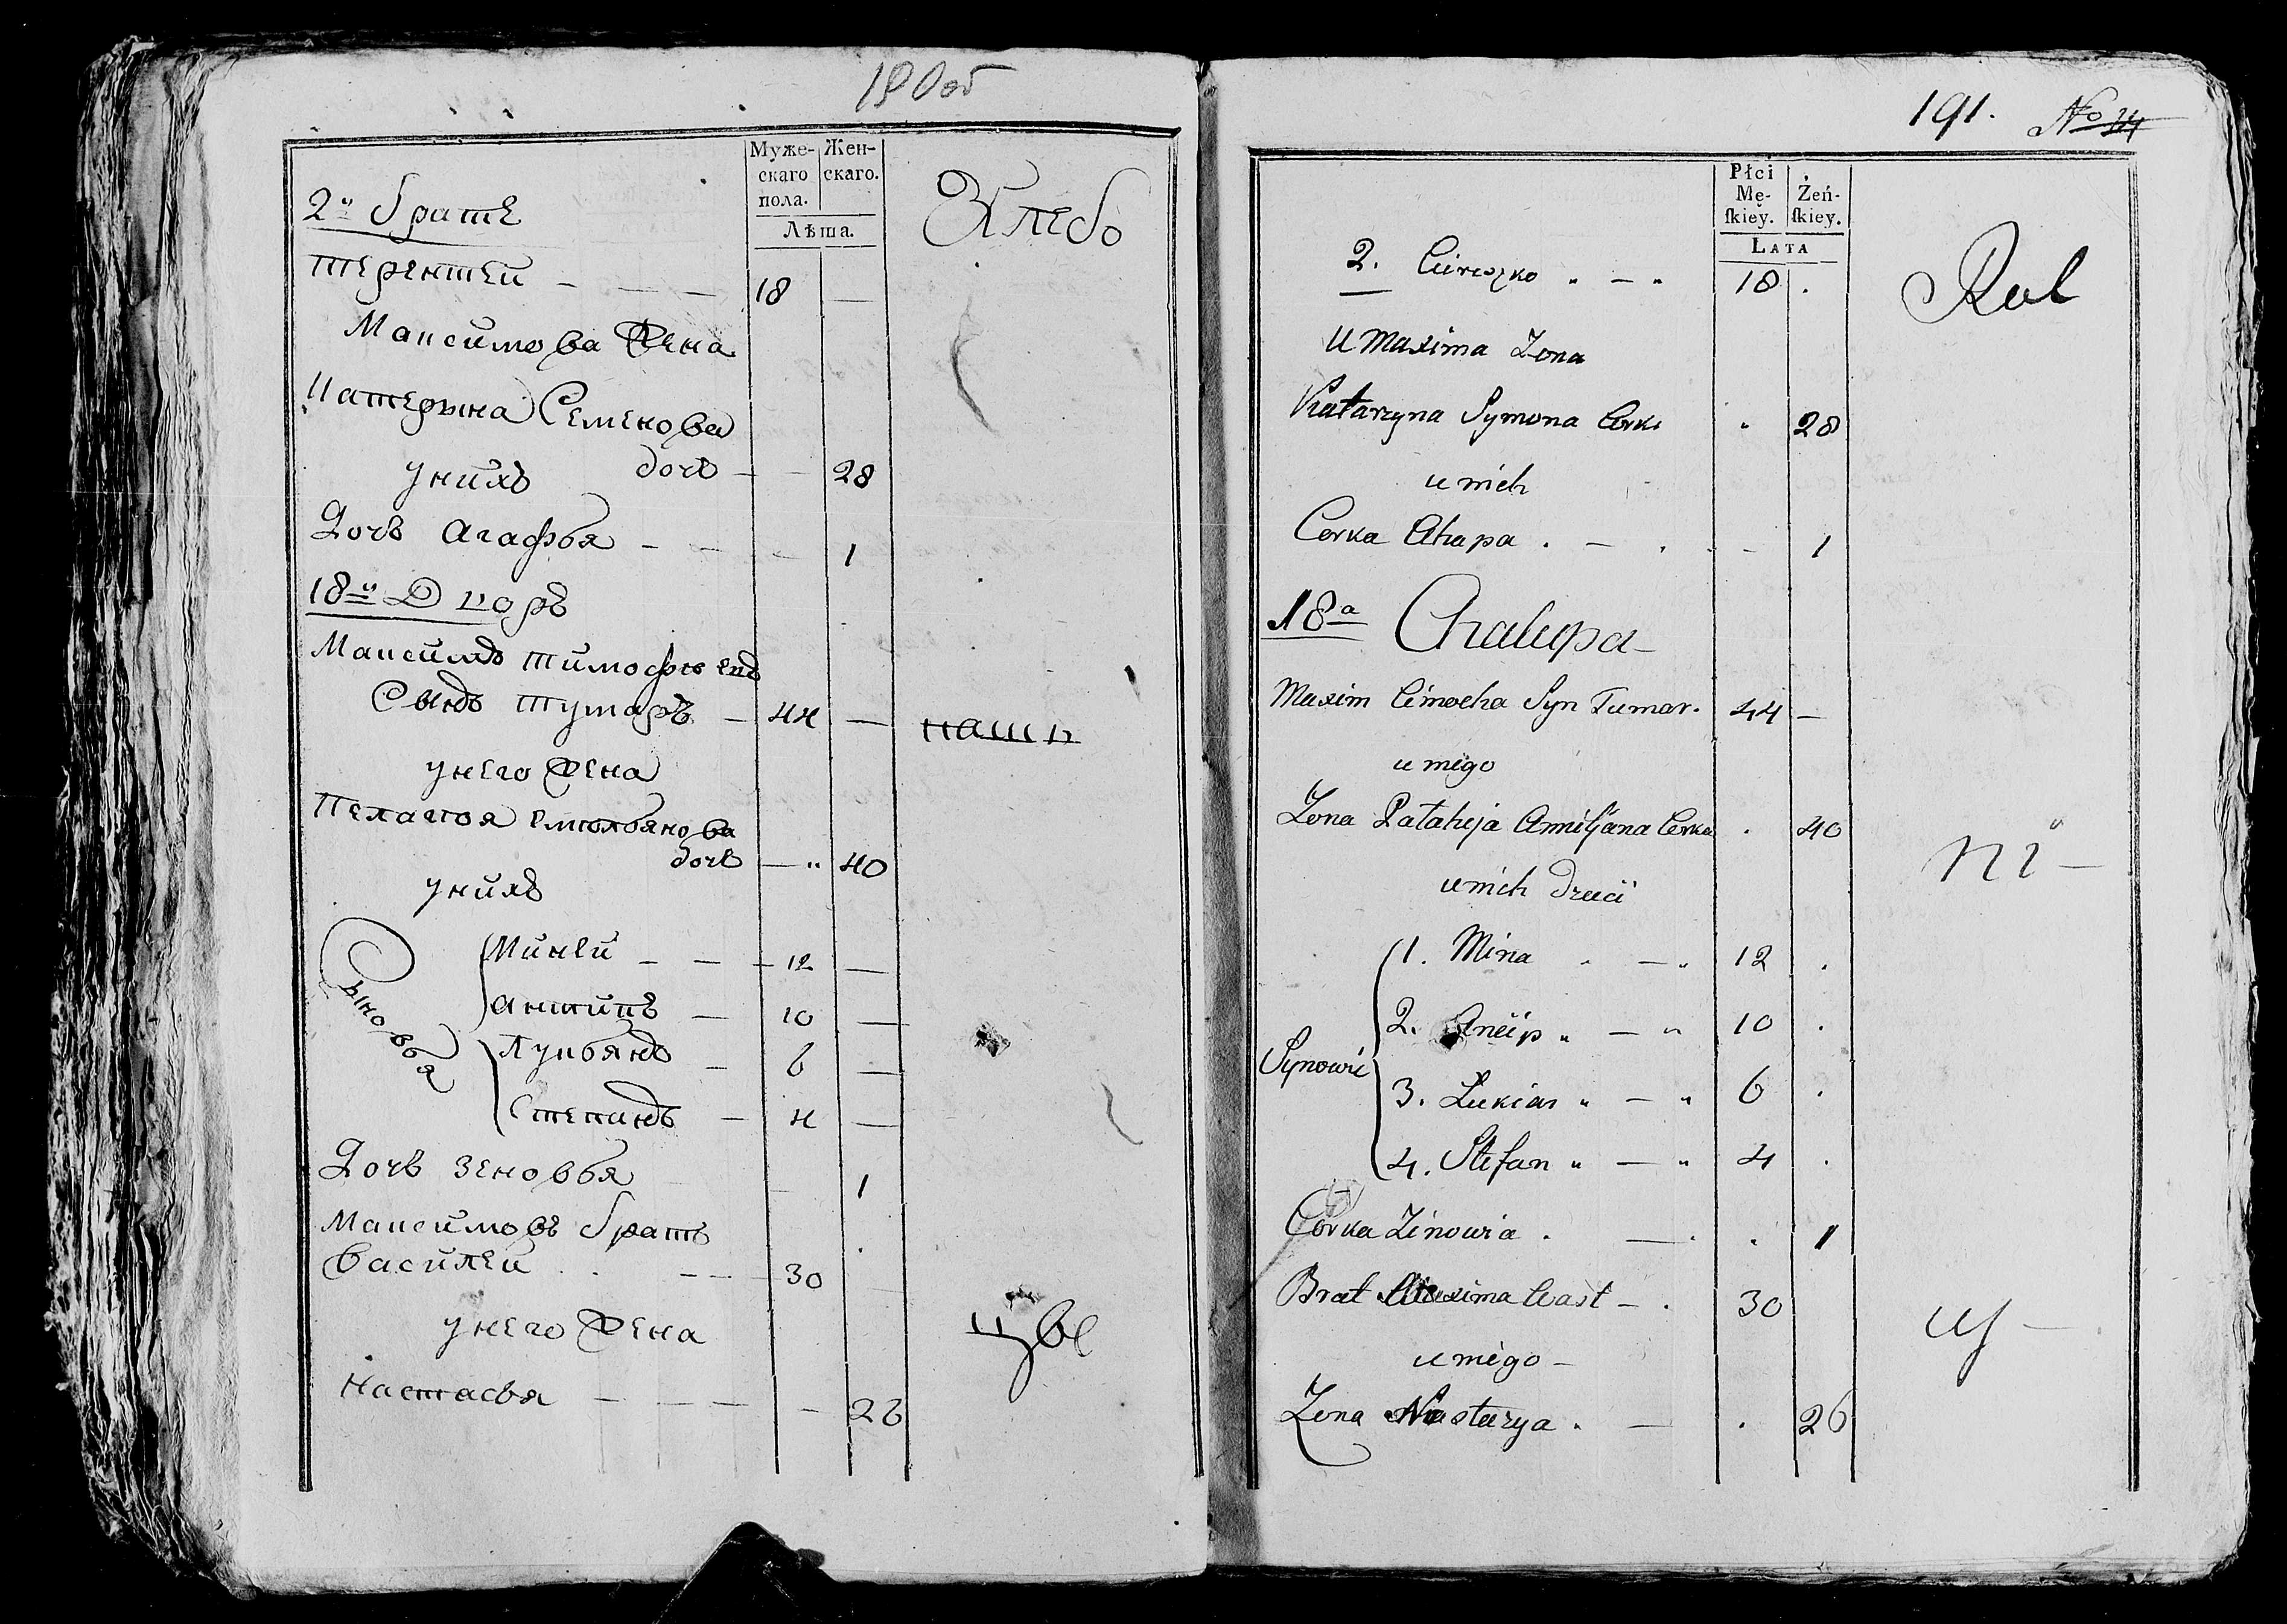 190об
Муже-
скаго
пола.
Жен-
скаго.
Лѣта.
Хлебо
2й братъ
терентей — — — 18 —
Максимова жена
Катерына Семенова
дочь — — 28
у нихъ
Дочь Агафья — — — 1
18й Дворъ
Максимъ тимофѣевъ
Сынъ тумаръ — 44 —
пашц
у него жена
Пелагоя Емильянова
дочь — „ 40
у нихъ
Сыновья
Миней — — — 12 —
антипъ — 10 —
Лукьянъ — 6 —
Степанъ — 4 —
Дочь Зеновья — 1
Максимовъ братъ
василей — — 30
у него жена
цвы
Настасья — — — — 26
191. No 34
Płci
Mę-
ſkiey.
Żeń-
ſkiey.
LATA
Rol
2. Ciereszko „ — „ 18 .
U Maxima Zona
Katarzyna Symona Corka „ 28
u nich
Corka Ahapa . — . . — 1
18a Chalupa —
Maxim Cimocha Syn Tumar. 44 —
u niego
Zona Pałahija Amiljana Corka . 40
ni —
u nich dzieci
Synowie
1. Mina . — „ 12 .
2. Ancip „ — „ 10 .
3. Łukian „ — „ 6 .
4. Stefan „ — „ 4 .
Corka Zinowia . — . . 1
Brat Maxima Wasil — . 30
cy —
u niego —
Zona Nastazya . — . 26